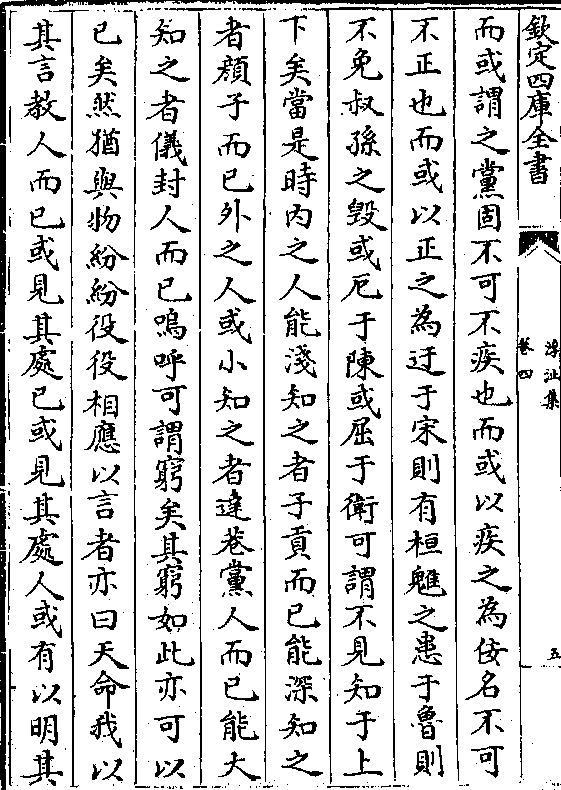 欽定四庫全書
浮沚集
卷四
五
而或謂之黨固不可不疾也而或以疾之為佞名不可
不正也而或以正之為迂于宋則有桓魋之患于魯則
不免叔孫之毀或厄于陳或屈于衛可謂不見知于上
下矣當是時内之人能淺知之者子貢而已能深知之
者顔子而已外之人或小知之者達巷黨人而已能大
知之者儀封人而已嗚呼可謂窮矣其窮如此亦可以
已矣然猶與物紛紛役役相應以言者亦曰天命我以
其言教人而已或見其處已或見其處人或有以明其